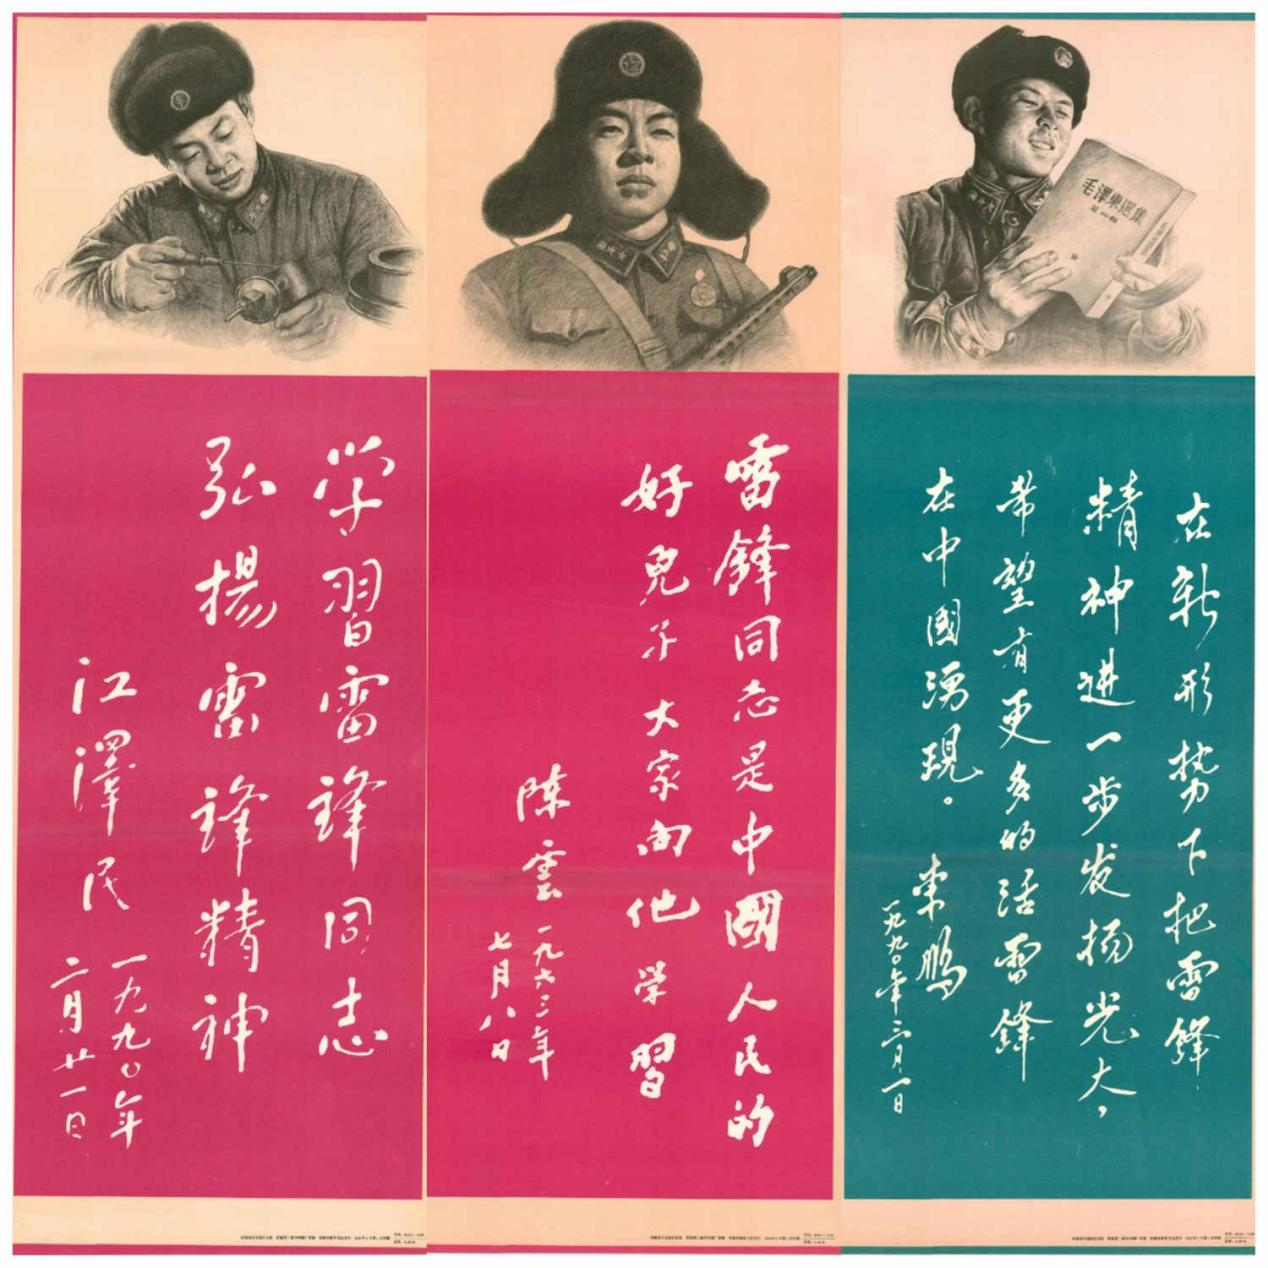 学習雷鋒同志
弘揚雷鋒精神
江澤民
一九九〇年
二月廿一日
雷鋒同志是中國人民的
好兒子大家向他学習
陈雲
一九六三年
七月八日
毛澤東選集
在新形势下把雷鋒
精神进一步发扬光大，
希望有更多的活雷鋒
在中國湧現。
李鹏
一九九〇年三月一日